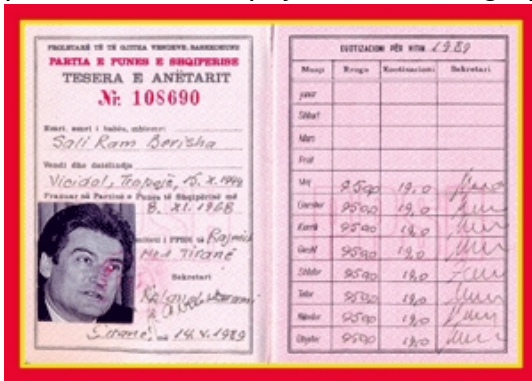 PROLETARË TË TË GJITHA VENDEVE, BASHKOHUNI
PARTIA E PUNES E SHQIPERISE
TESERA E ANËTARIT
Nr. 108690
Emri, emri i babës, mbiemri
Sali Ram Berisha
Vendi dhe datëlindja
Viçidol, Tropojë, 15. X. 1944
Pranuar në Partinë e Punës të Shqipërisë më
8. XI. 1968
PPSH të
Med Tiranë
Sekretari
Tiranë, 14. V. 1989
KUOTIZACIONI PËR VITIN 1989
Muaji Rroga Kuotizacioni Sekretari
Janar
Shkurt
Mars
Prill
Maj 9500 19,0
Qershor 9500 19,0
Korrik 9500 19,0
Gusht 9500 19,0
Shtator 9500 19,0
Tetor 9500 19,0
Nëntor 9500 19,0
Dhjetor 9500 19,0